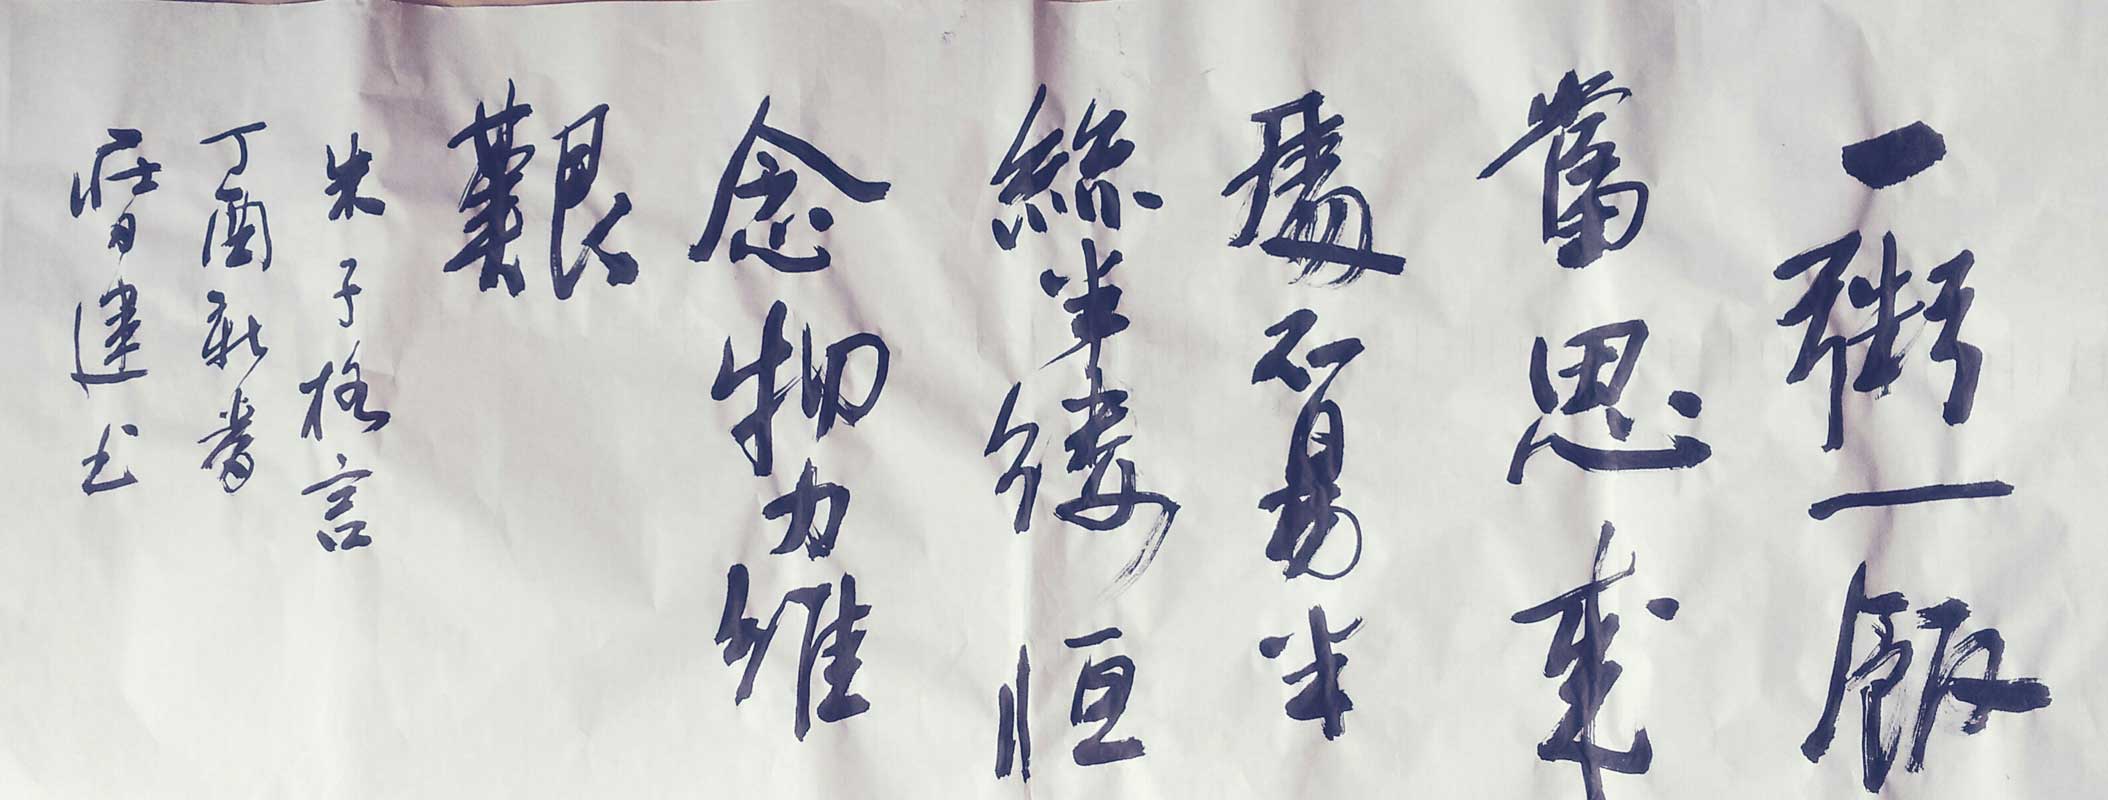 一粥一飯
當思來
處不易半
絲半縷恒
念物力維
艱
朱子格言
丁酉新春
建书